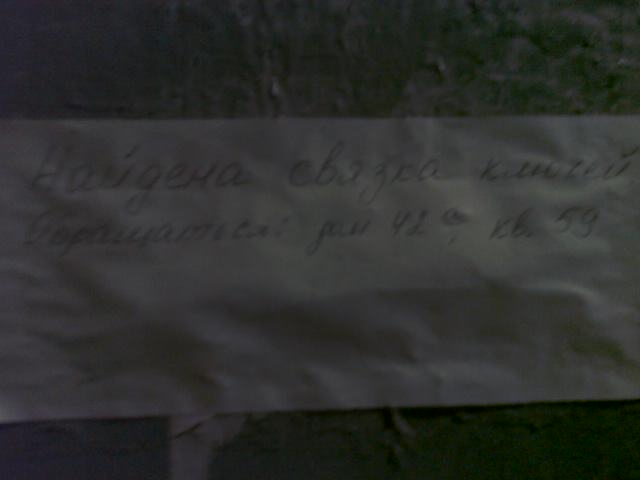 Найдена связка ключей
Обращаться: дом 42а, кв. 59